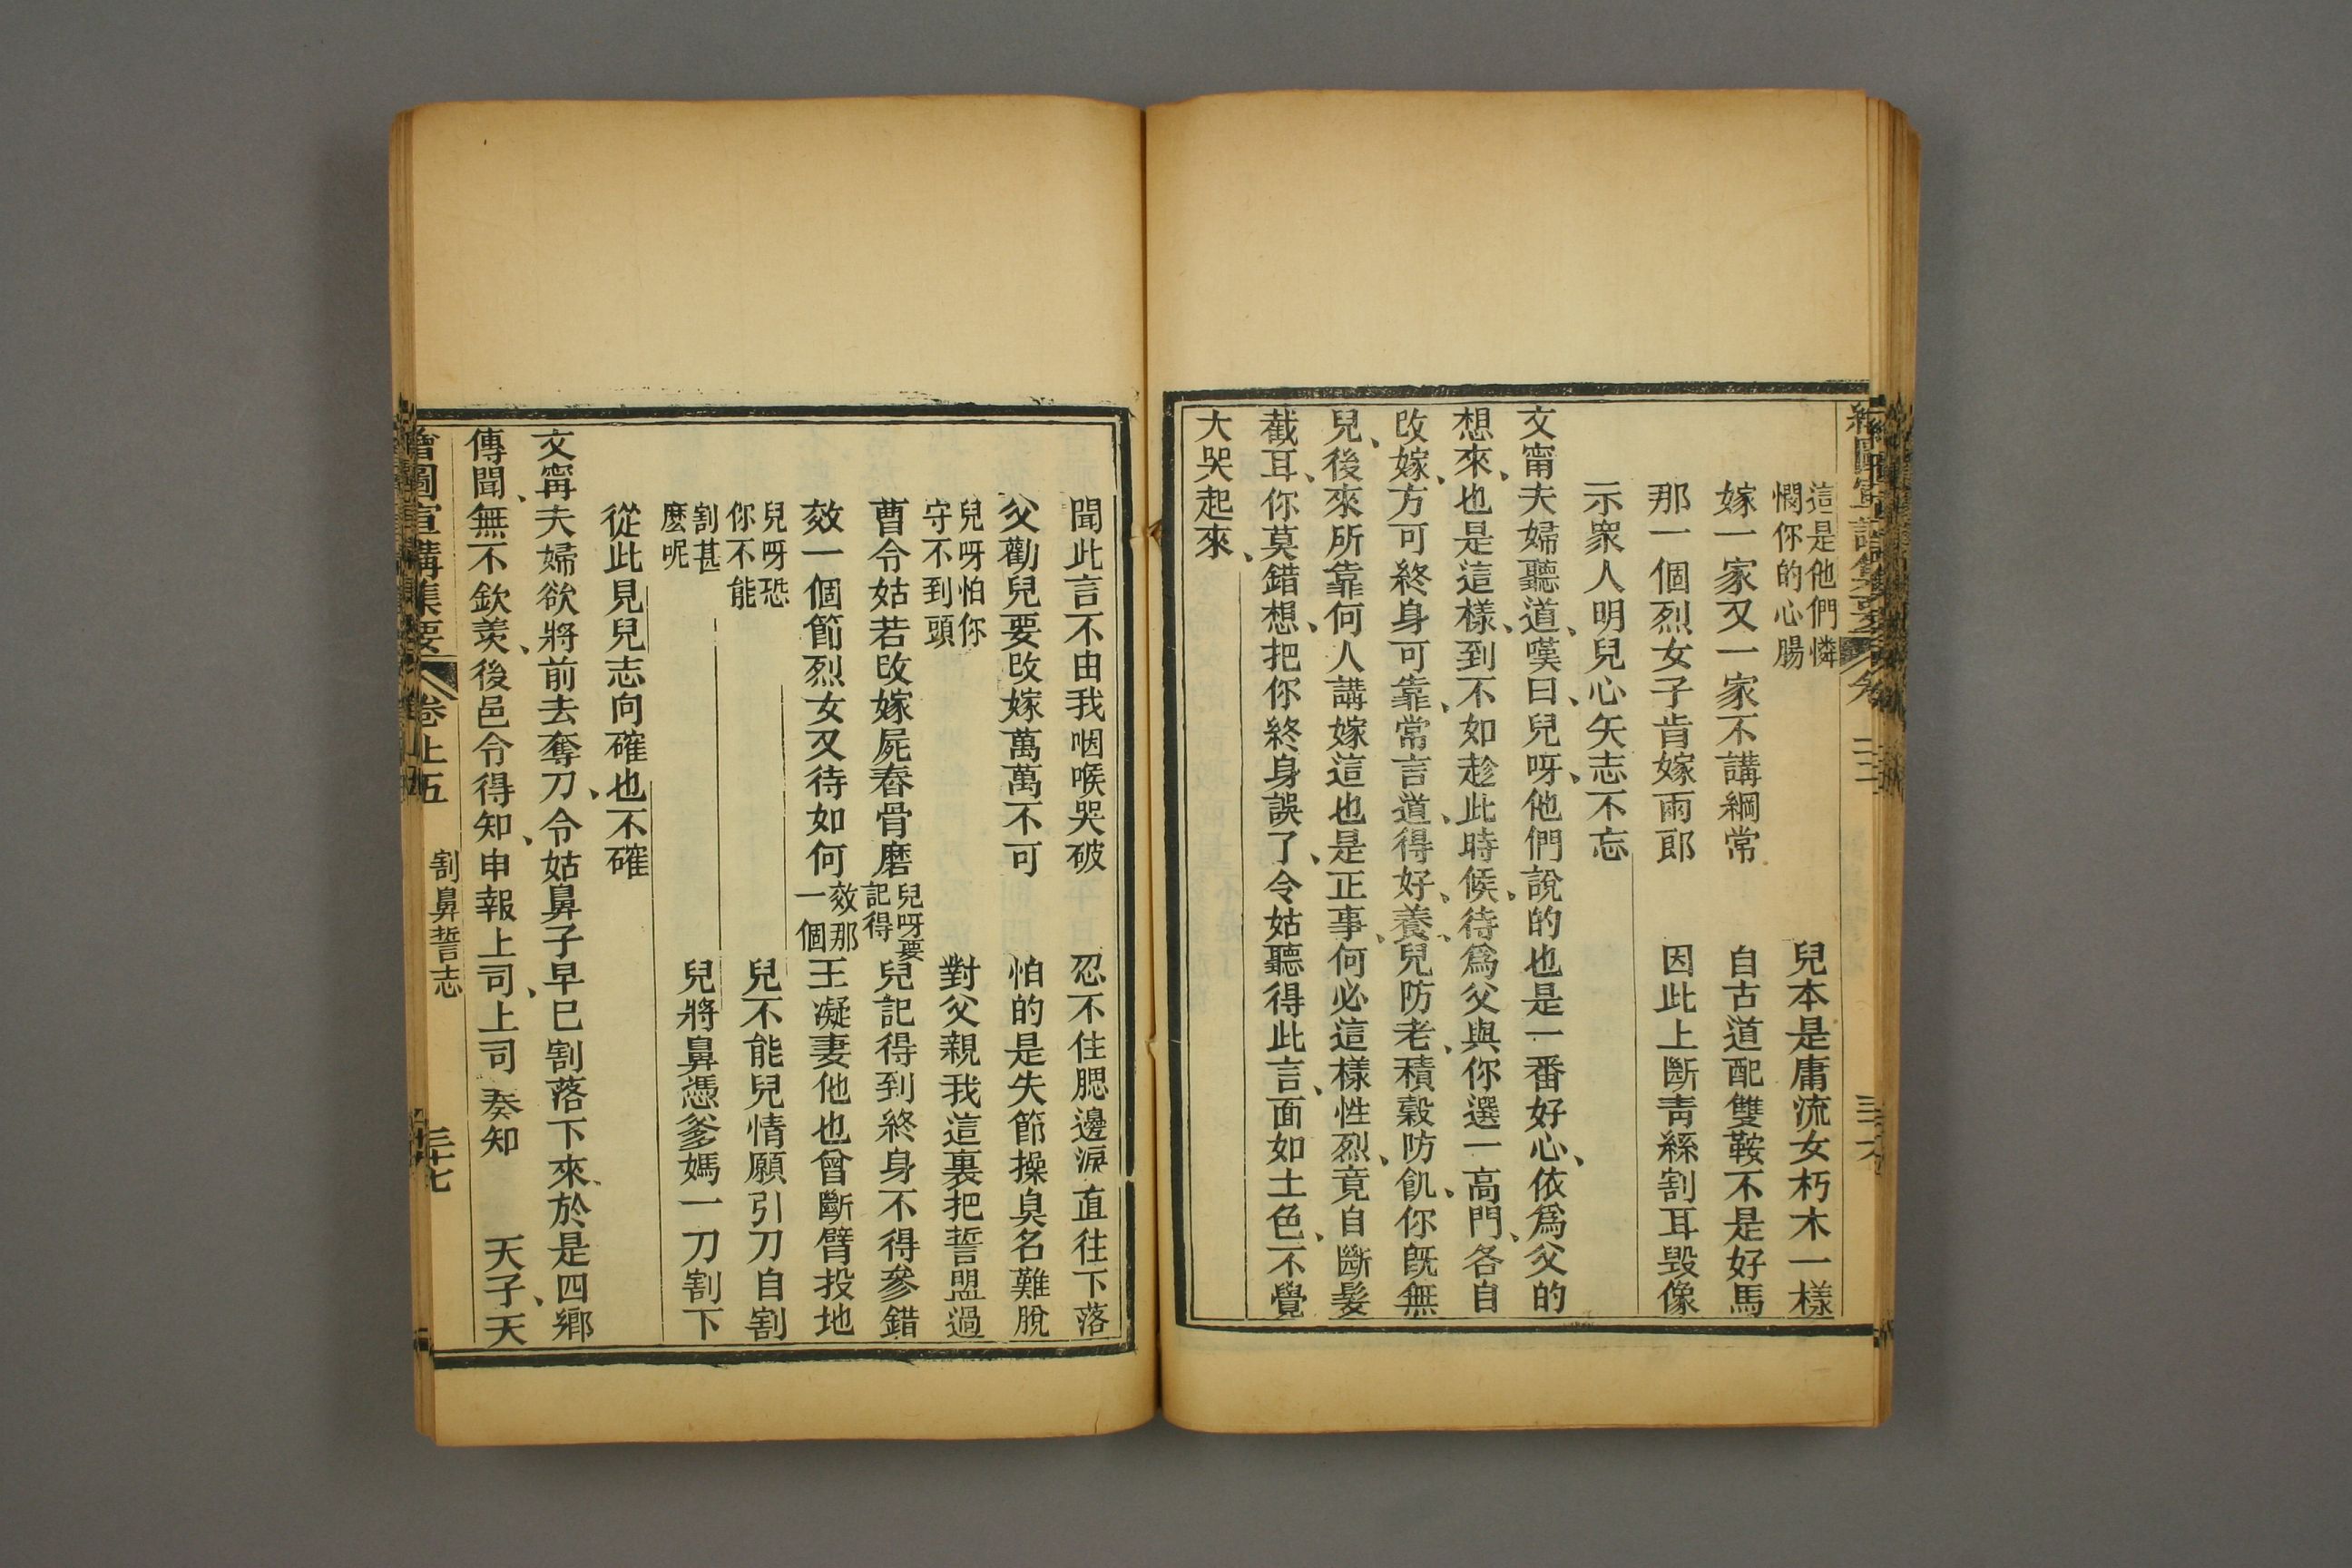 這是他們憐
憫你的心腸
兒本是庸流女朽木一樣
嫁一家又一家不講綱常 自古道配雙鞍不是好馬
那一個烈女子肯嫁兩郎 因此上斷靑絲割耳毀像
示衆人明兒心矢志不忘
文甯夫婦聽道、嘆曰、兒呀、他們說的也是一番好心、依爲父的
想來、也是這樣、到不如趁此時候、待爲父與你選一高門、各自
改嫁、方可終身可靠、常言道、得好、養、兒防老、積穀防飢、你旣無
兒、後來所靠何人講嫁這也是正事、何必這樣性烈、竟自斷髮
截耳、你莫錯想、把你終身誤了、令姑聽得此言、面如土色、不覺
大哭起來、
聞此言不由我咽喉哭破 忍不住腮邊淚直往下落
父勸兒要改嫁萬萬不可 怕的是失節操臭名難脫
兒呀怕你
守不到頭
對父親我這裏把誓盟過
曹令姑若改嫁屍舂骨磨
兒呀要
記得
兒記得到終身不得參錯
效一個節烈女又待如何
效那
一個
王凝妻他也曾斷臂投地
兒呀恐
你不能
兒不能兒情願引刀自割
割甚
麽呢
兒將鼻憑爹媽一刀割下
從此見兒志向確也不確
文甯夫婦欲將前去奪刀、令姑鼻子早已割落下來、於是四鄉
傳聞、無不欽羡、後邑令得知、申報上司、上司 奏知 天子、天
繪圖宣講集要 卷上五 割鼻誓志 三十七